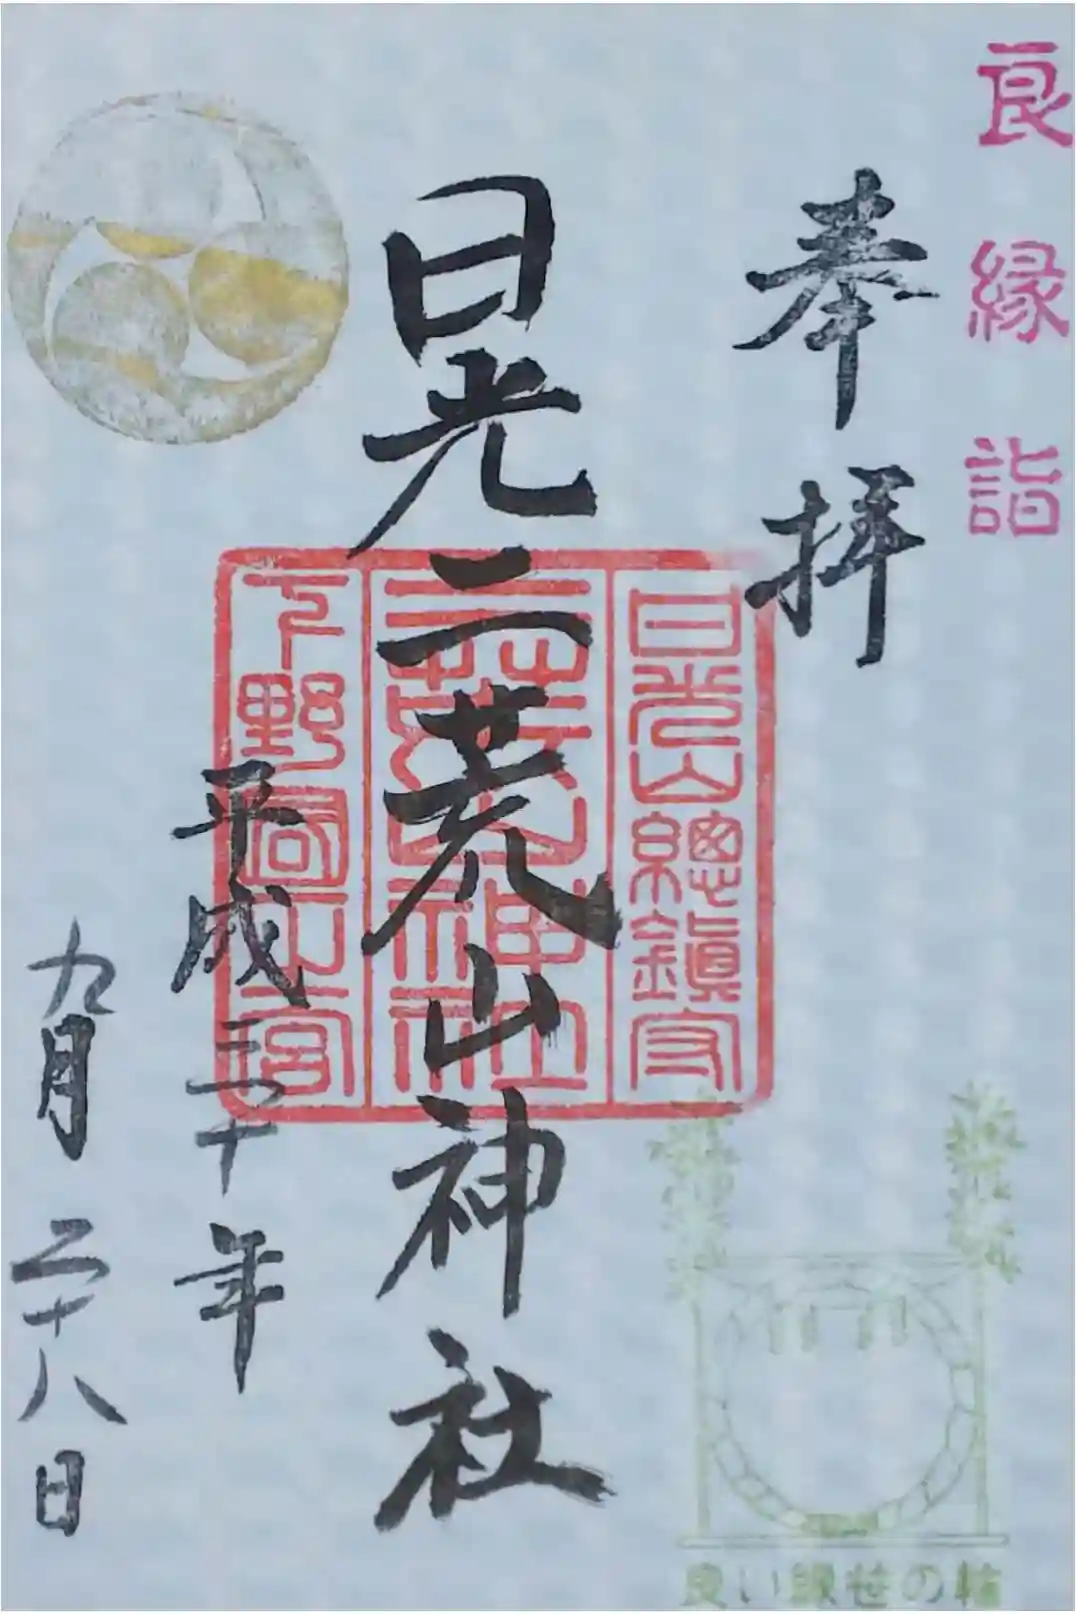 良縁詣
奉拝
日光山總鎮守
日光二荒山神社
二荒山神社
下野國一宮
平成三十年
九月二十八日
良い縁笹の輪